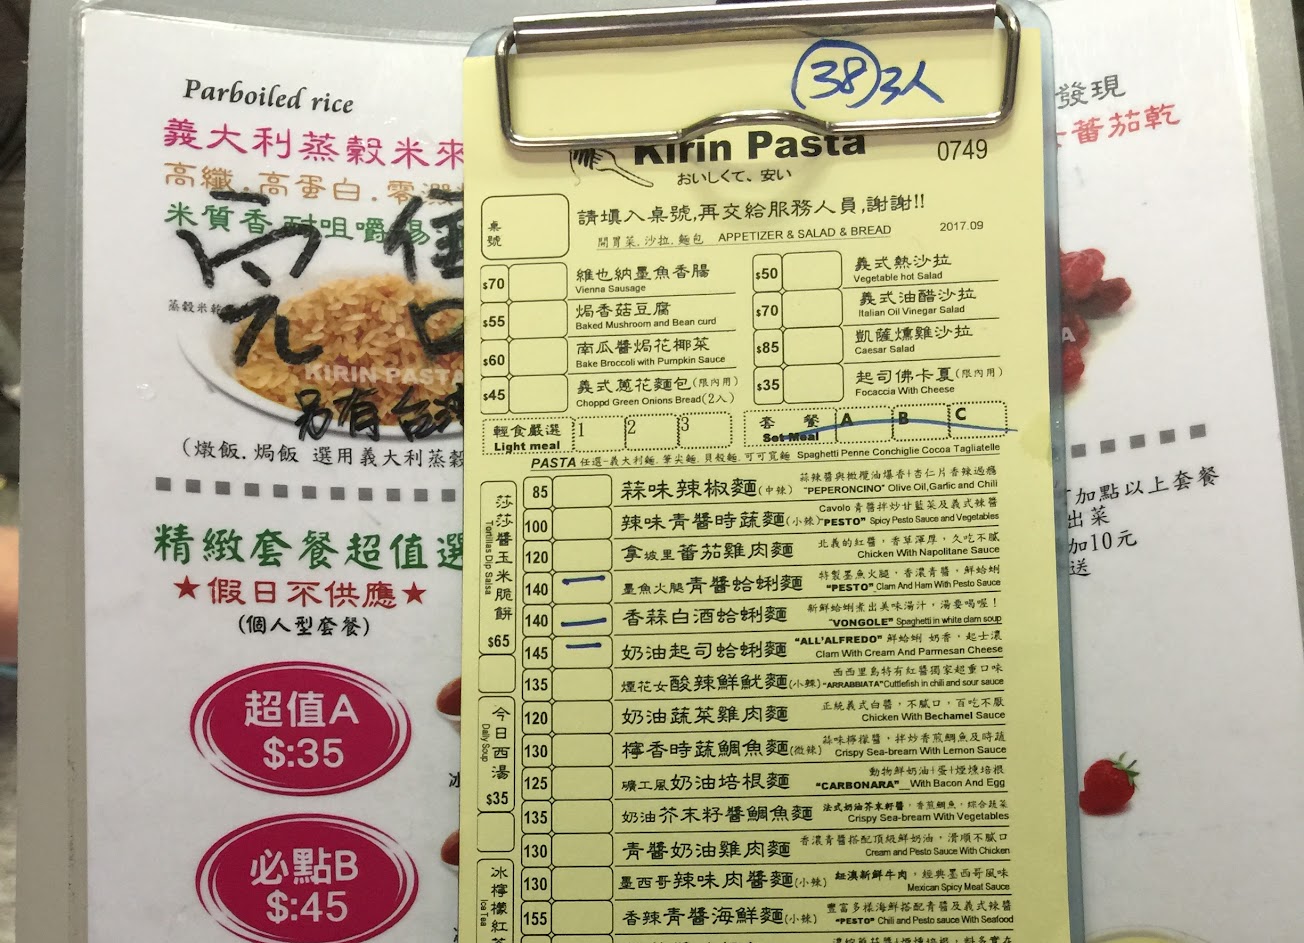 Parboiled rice
義大利蒸穀米來
高纖.高蛋白.零澱
米質香 耐咀嚼 易
蒸穀米乾
KIRIN PASTA
另有台灣
(燉飯.焗飯 選用義大利蒸穀
精緻套餐超值選
★假日不供應★
(個人型套餐)
超值A
$:35
必點B
$:45
38 3人
Kirin Pasta
0749
おいしくて、安い
桌號
請填入桌號,再交給服務人員,謝謝!!
開胃菜.沙拉.麵包 APPETIZER & SALAD & BREAD
2017.09
$70 維也納墨魚香腸
Vienna Sausage
$55 焗香菇豆腐
Baked Mushroom and Bean curd
$60 南瓜醬焗花椰菜
Bake Broccoli with Pumpkin Sauce
$45 義式蔥花麵包(限內用)
Choppd Green Onions Bread(2入)
$50 義式熱沙拉
Vegetable hot Salad
$70 義式油醋沙拉
Italian Oil Vinegar Salad
$85 凱薩燻雞沙拉
Caesar Salad
$35 起司佛卡夏(限內用)
Focaccia With Cheese
輕食嚴選 1 2 3
Light meal
套餐 A B C
Set Meal
PASTA 任選-義大利麵.筆尖麵.貝殼麵.可可寬麵 Spaghetti Penne Conchiglie Cocoa Tagliatelle
莎莎醬玉米脆餅
Tortillas Dip Salsa
$65
今日西湯
Daily Soup
$35
冰檸檬紅茶
Ice Tea
85 蒜味辣椒麵(中辣) 蒜辣醬與橄欖油爆香!杏仁片香辣過癮
"PEPERONCINO" Olive Oil,Garlic and Chili
100 辣味青醬時蔬麵(小辣) Cavolo 青醬拌炒甘藍菜及義式辣醬
"PESTO" Spicy Pesto Sauce and Vegetables
120 拿坡里蕃茄雞肉麵 北義的紅醬，香草渾厚，久吃不膩
Chicken With Napolitane Sauce
140 墨魚火腿青醬蛤蜊麵 特製墨魚火腿，香濃青醬，鮮蛤蜊
"PESTO" Clam And Ham With Pesto Sauce
140 香蒜白酒蛤蜊麵 新鮮蛤蜊煮出美味湯汁，湯要喝喔!
"VONGOLE" Spaghetti in white clam soup
145 奶油起司蛤蜊麵 "ALL'ALFREDO" 鮮蛤蜊 奶香，起士濃
Clam With Cream And Parmesan Cheese
135 煙花女酸辣鮮魷麵(小辣) 西西里島特有紅醬獨家超重口味
"ARRABBIATA" Cuttlefish in chili and sour sauce
120 奶油蔬菜雞肉麵 正統義式白醬，不膩口，百吃不厭
Chicken With Bechamel Sauce
130 檸香時蔬鯛魚麵(微辣) 蒜味檸檬醬，拌炒香煎鯛魚及時蔬
Crispy Sea-bream With Lemon Sauce
125 礦工風奶油培根麵 動物鮮奶油!蛋!煙燻培根
"CARBONARA" With Bacon And Egg
135 奶油芥末籽醬鯛魚麵 法式奶油芥末籽醬，香煎鯛魚，綜合蔬菜
Crispy Sea-bream With Vegetables
130 青醬奶油雞肉麵 香濃青醬搭配頂級鮮奶油，滑順不膩口
Cream and Pesto Sauce With Chicken
130 墨西哥辣味肉醬麵(小辣) 紐澳新鮮牛肉，經典墨西哥風味
Mexican Spicy Meat Sauce
155 香辣青醬海鮮麵(小辣) 豐富多樣海鮮搭配青醬及義式辣醬
"PESTO" Chili and Pesto sauce With Seafood
發現
蕃茄乾
加點以上套餐
出菜
加10元
送